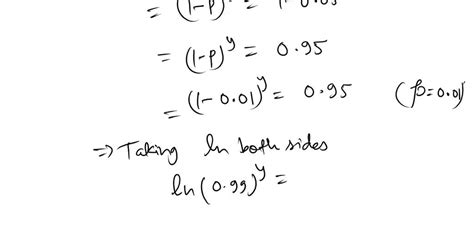 = (1-p)^y = 1-0.05
= (1-p)^y = 0.95
= (1-0.01)^y = 0.95 (p=0.01)
⇒ Taking ln both sides
ln(0.99)^y =